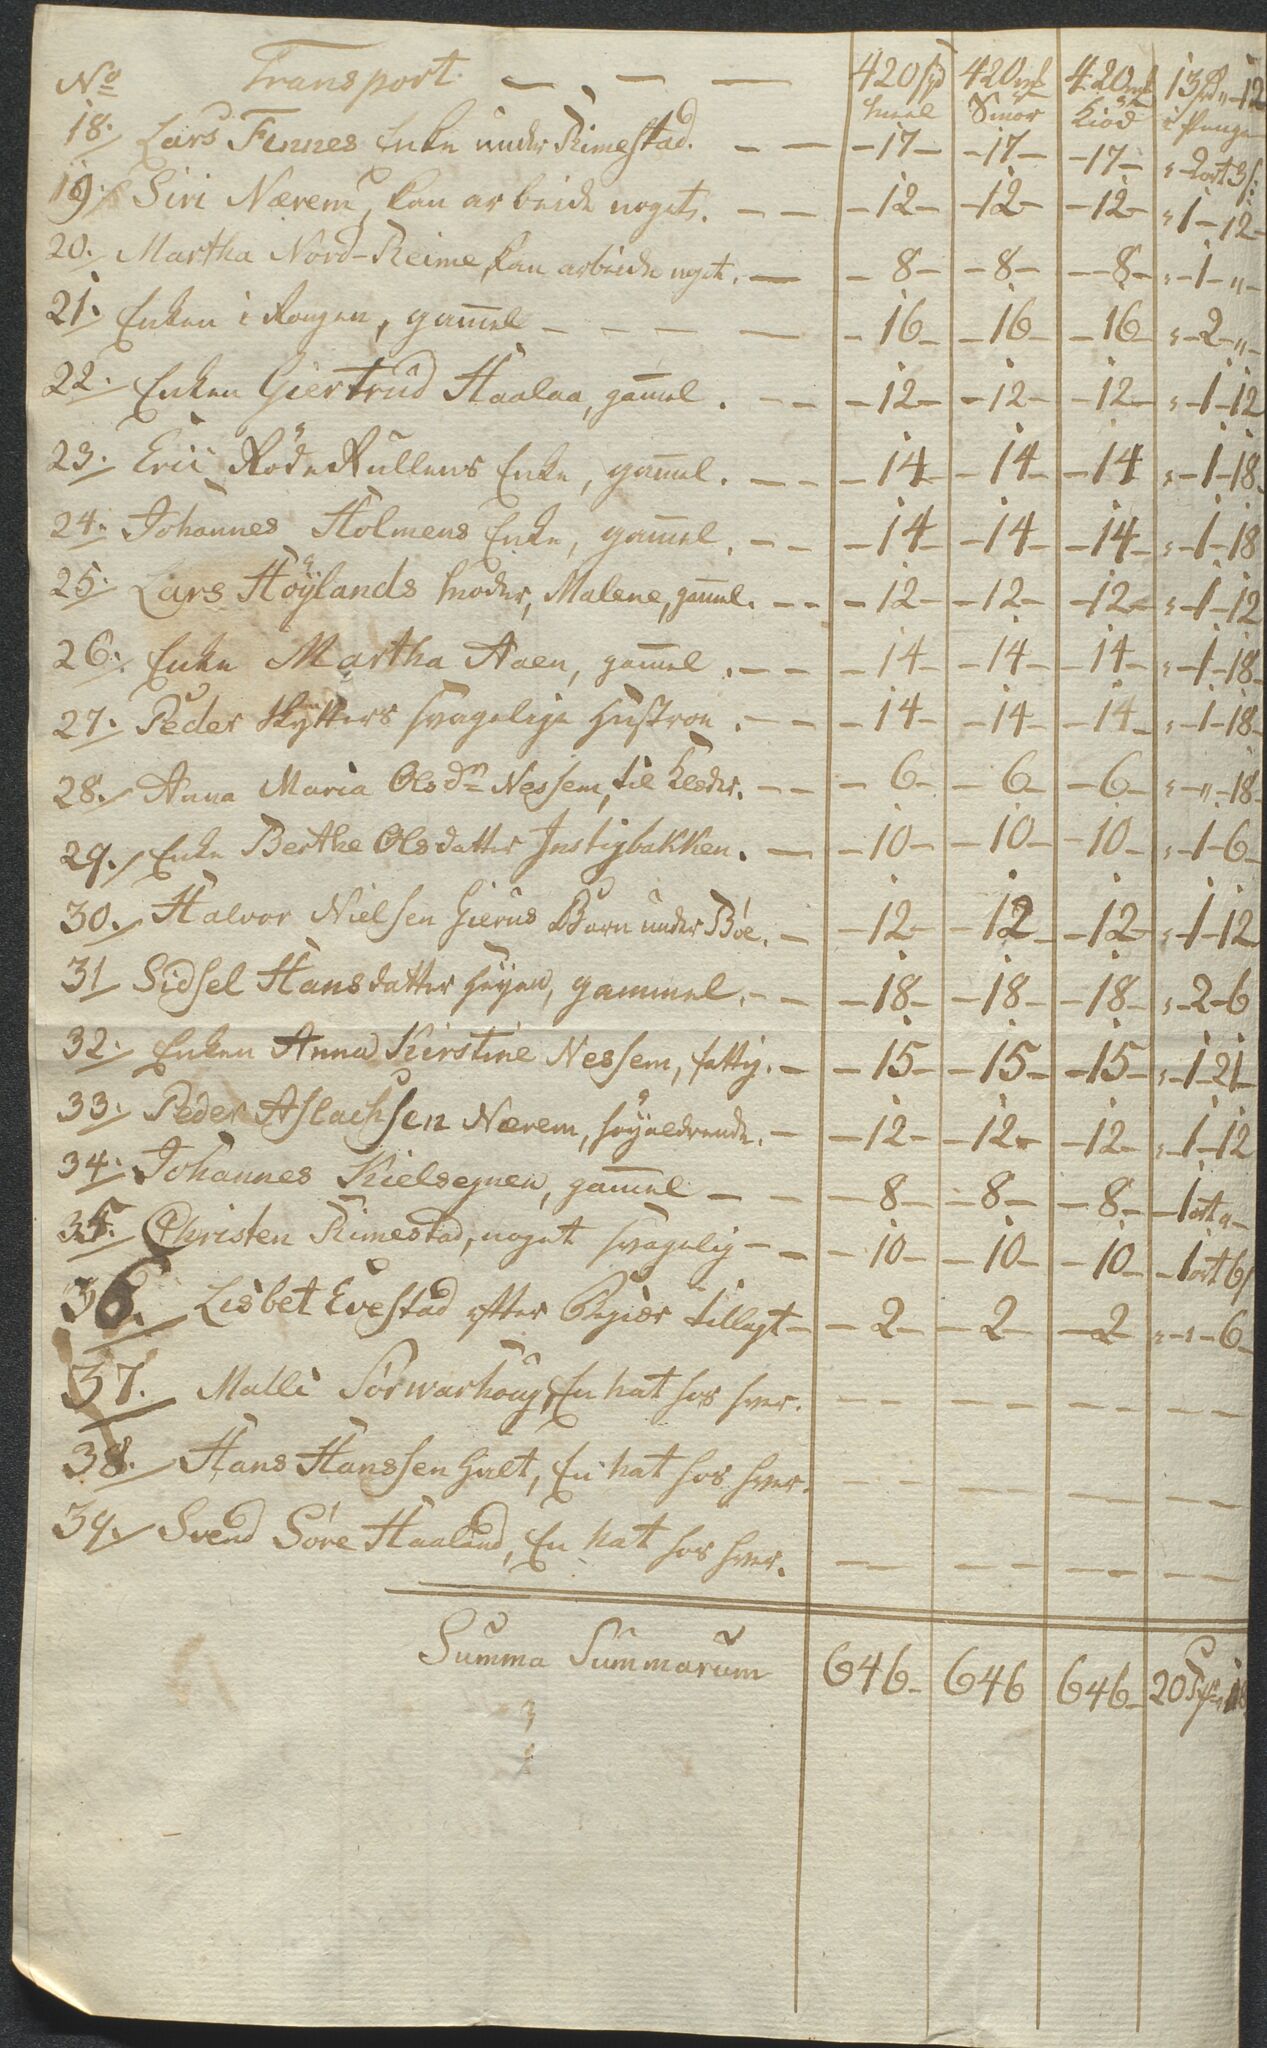 No Transport. — — — 420 spd 420 mk 420 mk 13 spd „ 12
meel Smör Kiöd i Penge
18. Lars Fennes Enke under Rimestad. — — 17 — 17 — 17 — „ 2 ort 3 s:
19. Siri Nærem, kan arbeide noget. — — 12 — 12 — 12 — „ 1 — 12 —
20. Martha Nord-Reime, kan arbeide noget. — — 8 — 8 — 8 — „ — 1 — „ —
21. Enken i Kongen, gam̅el — — — — — 16 — 16 — 16 — „ — 2 — „ —
22. Enken Giertrud Haalaa, gam̅el. — — — 12 — 12 — 12 — „ — 1 — 12
23. Erii Röde Kullens Enke, gam̅el. — — — 14 — 14 — 14 — „ — 1 — 18
24. Johannes Holmens Enke, gam̅el. — — — 14 — 14 — 14 — „ — 1 — 18
25. Lars Höÿlands moder, Malene, gam̅el. — — — 12 — 12 — 12 — „ — 1 — 12
26. Enke Martha Aaen, gam̅el. — — — 14 — 14 — 14 — „ — 1 — 18
27. Peder Skÿtters svagelige Hustroe. — — — 14 — 14 — 14 — „ — 1 — 18
28. Anna Maria Olsdn Nessem, til Klæder. — — — 6 — 6 — 6 — „ — „ — 18
29. Enke Berthe Olsdatter Instigbakken. — — 10 — 10 — 10 — „ — 1 — 6
30. Halvor Nielsen Gierus Barn under Böe. — — 12 — 12 — 12 — „ — 1 — 12
31 Sidsel Hansdatter , gammel. — — — 18 — 18 — 18 — „ — 2 — 6
32. Enken Anna Kirstine Nessem, fattig. — — 15 — 15 — 15 — „ — 1 — 21
33. Peder Aslachsen Nærem, höÿaldrende. — — 12 — 12 — 12 — „ — 1 — 12
34. Johannes Kielsegnen, gam̅el — — — 8 — 8 — 8 — 1 ort „ —
35. Christen Rimestad, noget svagelig — — — 10 — 10 — 10 — 1 ort 6 s
36. Lisbet Evestad efter tillagt — — 2 — 2 — 2 — „ — „ — 6
37. Malli Sörwarhoug, En hat hos hver. — — — — — — — —
38. Hans Hanssen Hult, En hat hos hver. — — — — — — — —
39. Svend Söre Haaland, En hat hos hver. — — — — — — — —
Summa Summarum 646 — 646 646 — 20 Spd „ 18